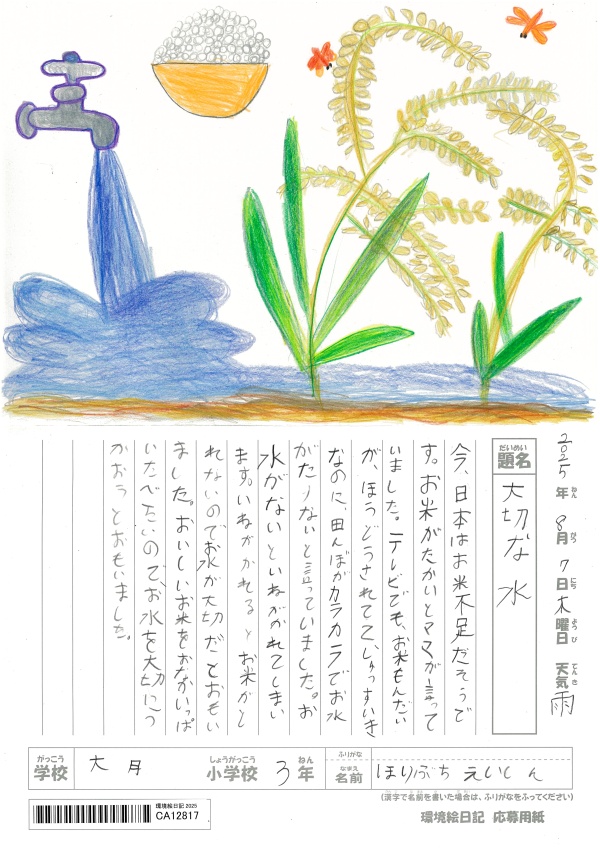 2025年 8月 7日 木曜日 天気 雨
ねん がつ にち ようび てんき
だいめい
題名 大切な水
今、日本はお米不足だそうで
す。お米がたかいとママが言って
いました。テレビでも、お米もんだい
が、ほうどうされてて、しゅっすいき
なのに、田んぼがカラカラでお水
がたりないと言っていました。お
水がないといねがかれてしまい
ます。いねがかれるとお米がと
れないのでお水が大切だとおもい
ました。おいしいお米をおなかいっぱ
いたべたいので、お水を大切につ
かおうとおもいました。
がっこう しょうがっこう ねん ふりがな
学校 大月 小学校 3年
なまえ
名前 ほりぶち えいしん
(漢字で名前を書いた場合は、ふりがなをふってください)
環境絵日記 2025
CA12817
環境絵日記 応募用紙